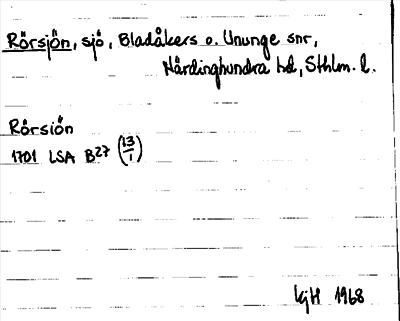 Rörsjön, sjö, Bladåkers o. Ununge snr,
Närdinghundra hd, Sthlm. l.
Rörsiön
1701 LSA B27 (13/1)
KjH 1968